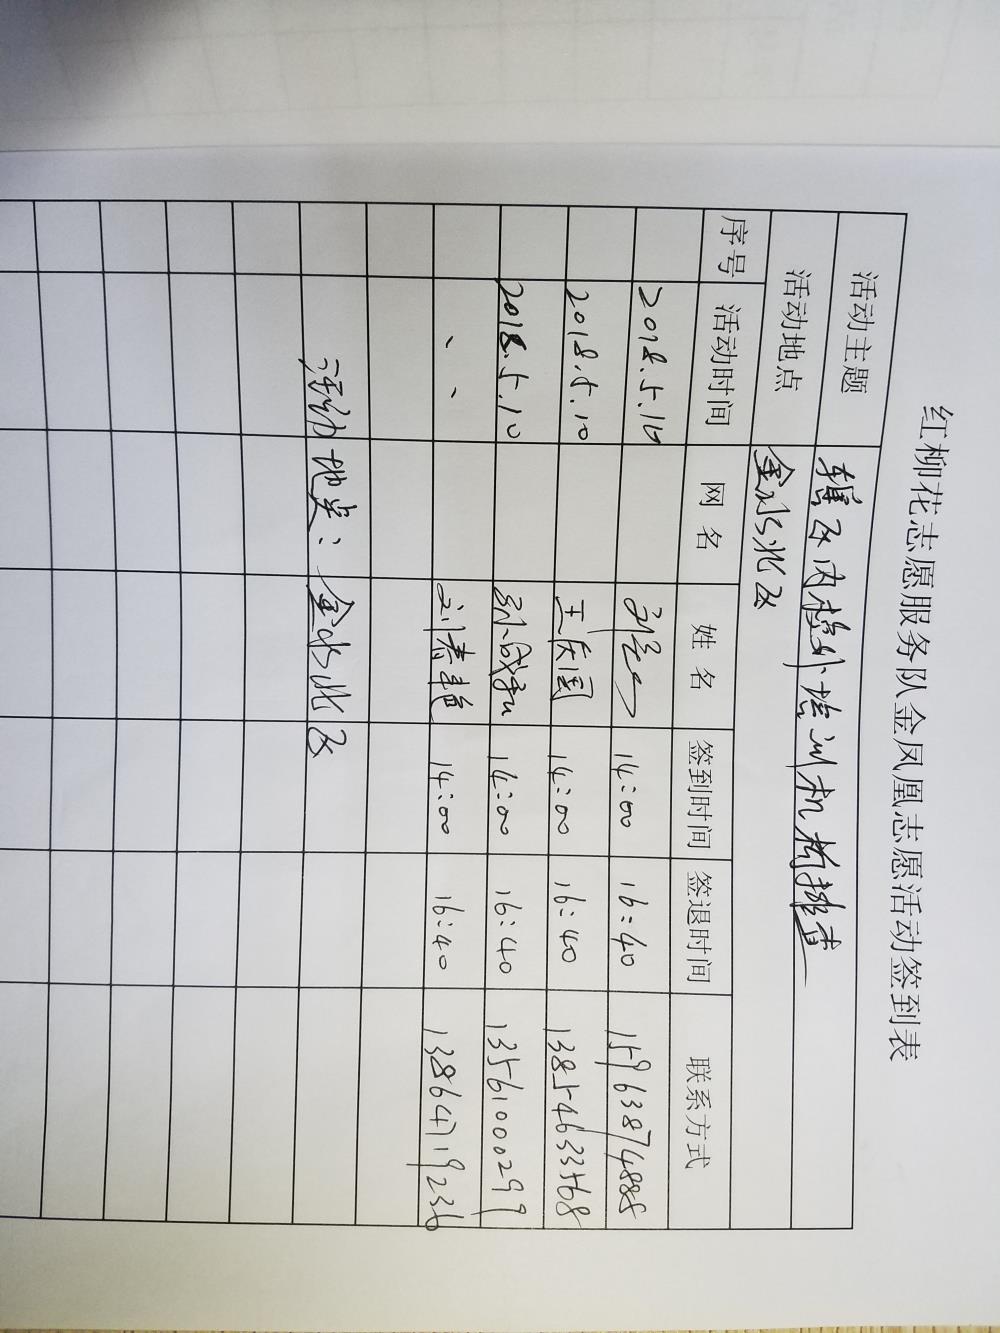 红柳花志愿服务队金凤凰志愿活动签到表
活动主题 辖区内校外培训机构排查
活动地点 金水北区
序号 活动时间 网名 姓名 签到时间 签退时间 联系方式
2018.5.10 14:00 16:40 15963874888
2018.5.10 王庆国 14:00 16:40 13854633568
2018.5.10 14:00 16:40 13561000299
、、 刘春艳 14:00 16:40 13864719236
活动地点：金水北区